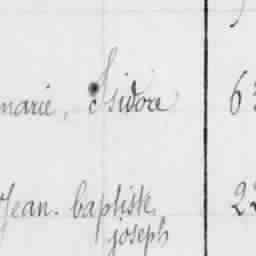 marie, Isidore 63
Jean. baptiste 22
joseph